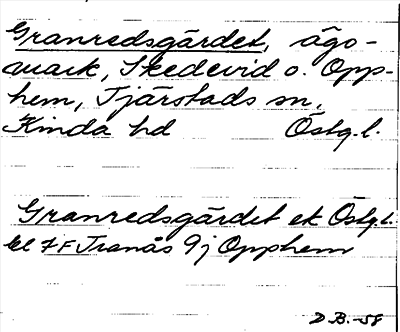 Granredsgärdet, ägo-
mark, Skedevid o. Opp-
hem, Tjärstads sn,
Kinda hd Östg.l.
Granredsgärdet ek Östg.l.
bl 7F Tranås 9j Opphem
D.B.-58